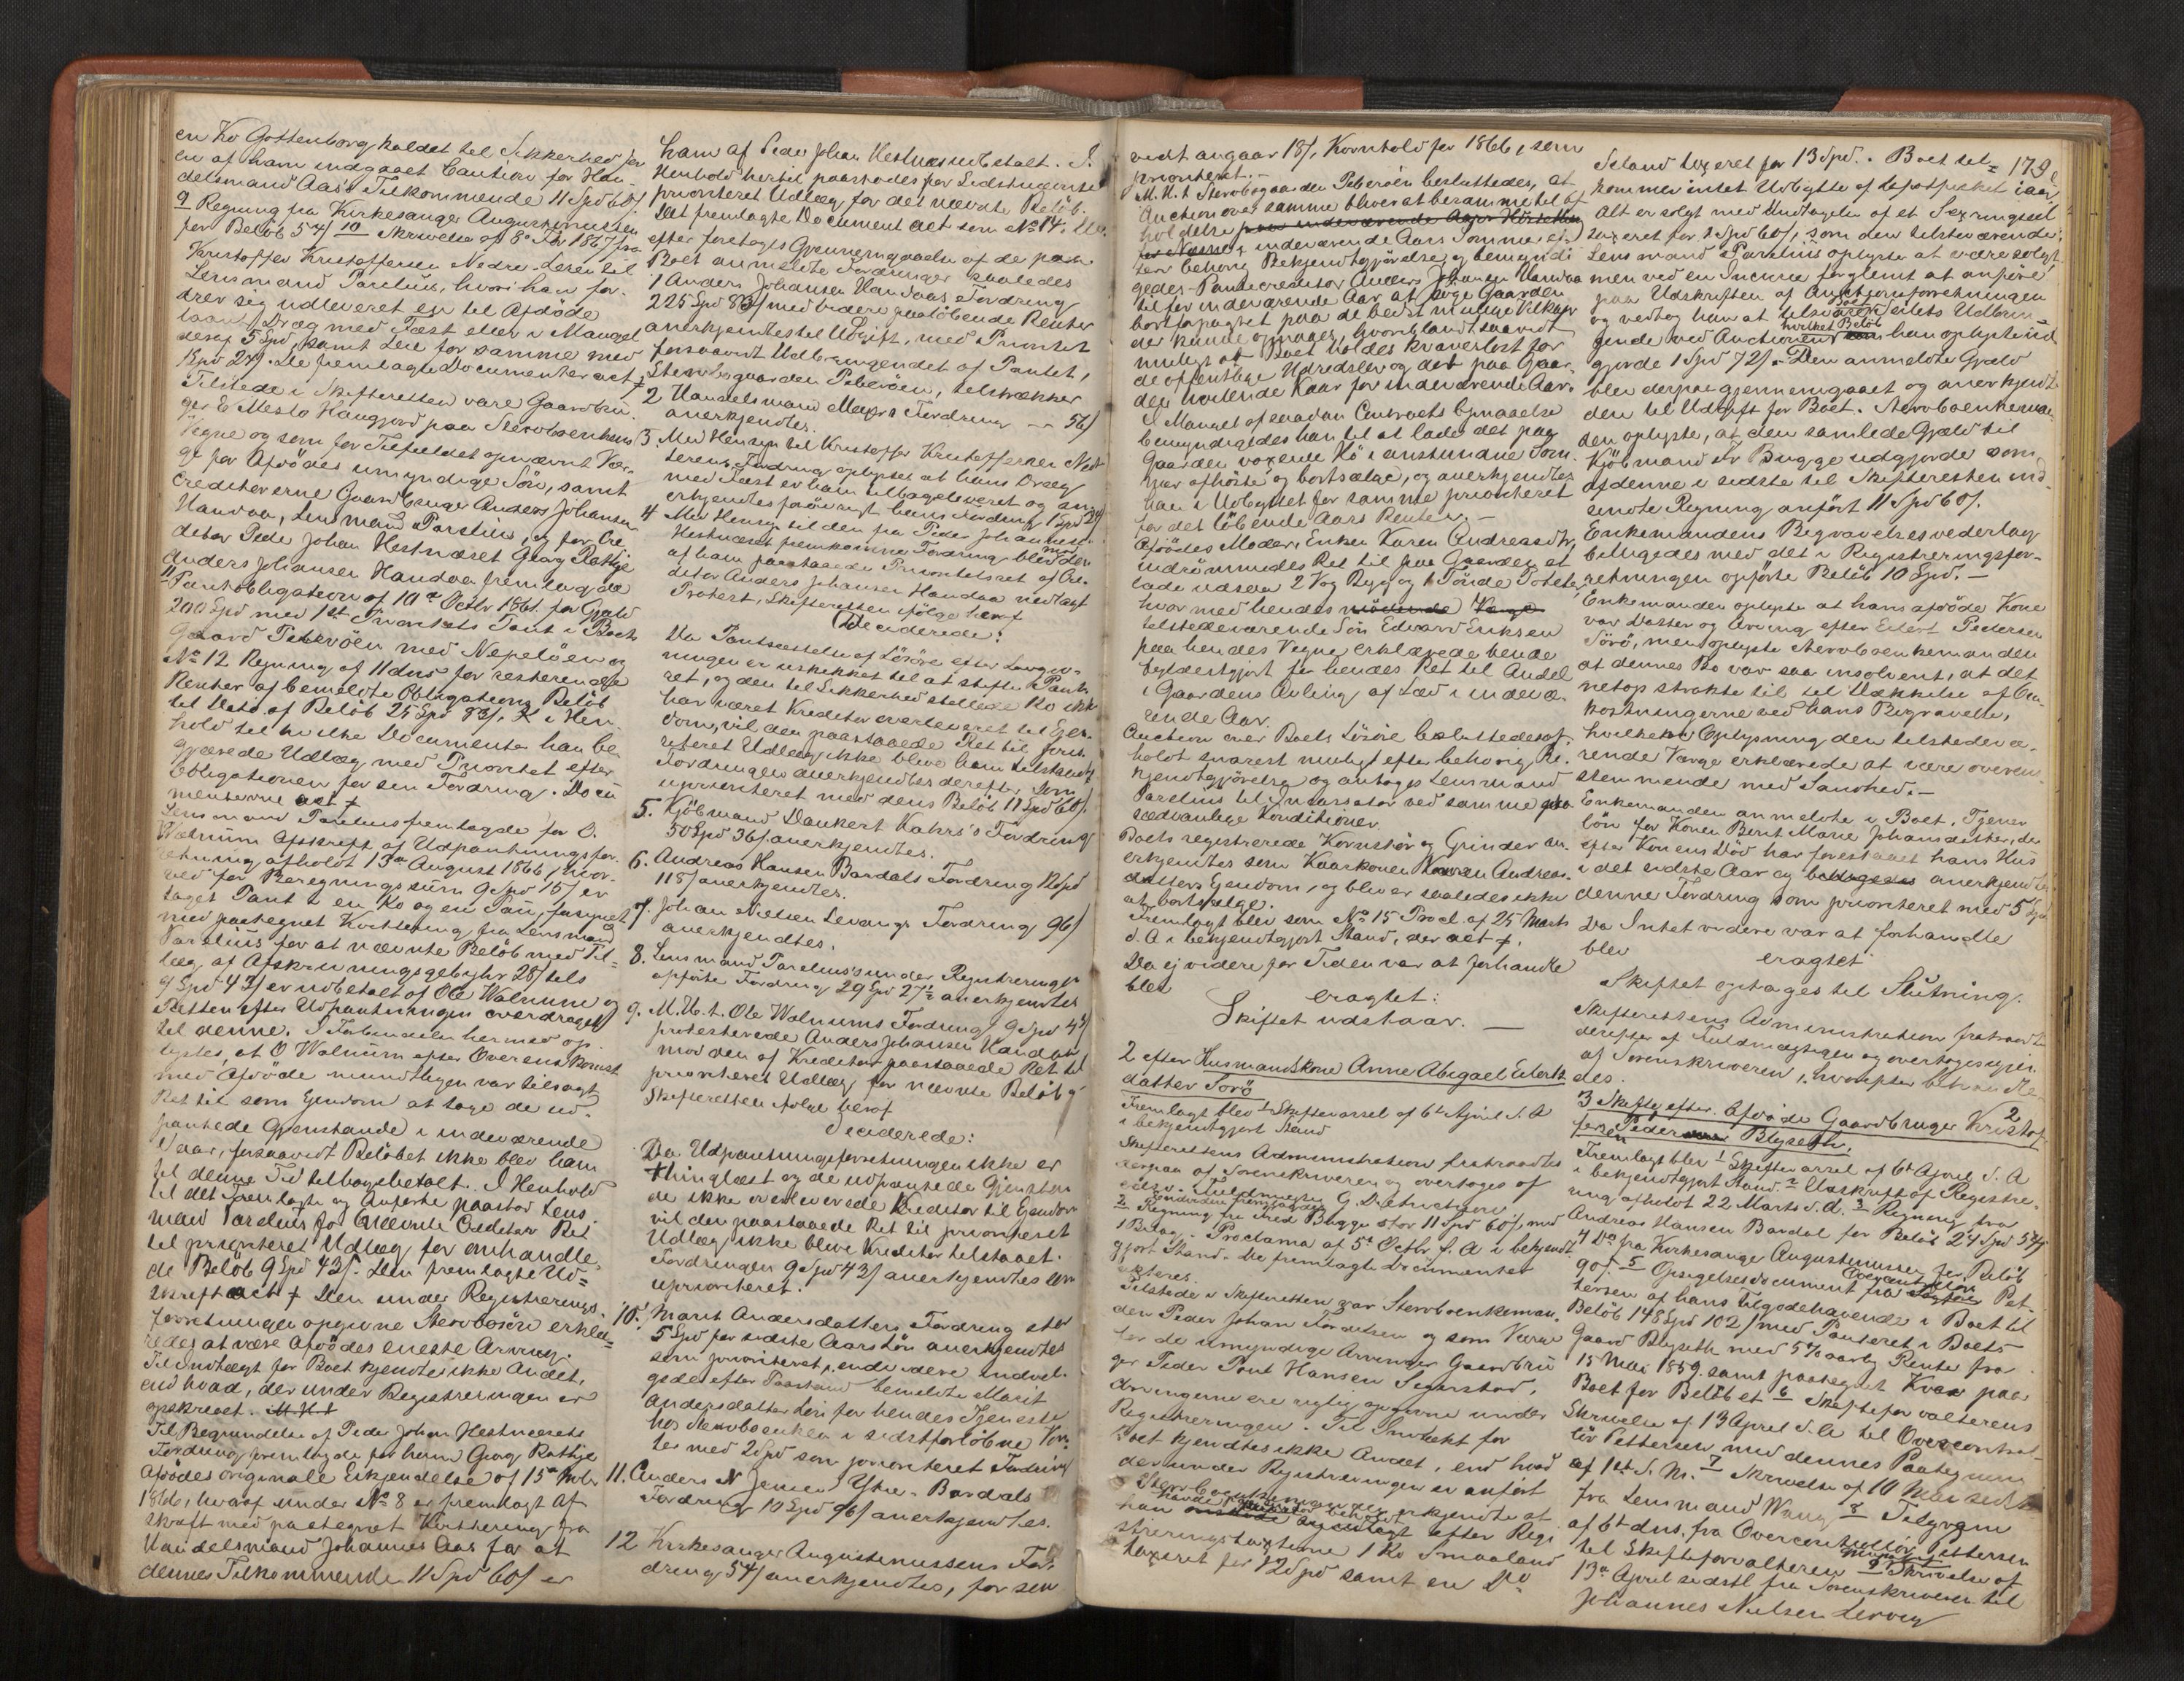 en Ko Gottenborg kaldet til Sikkerhed for
en af ham indgaaet Caution for Han-
delsmand Aas's Tilkommende 11 Spd 60/.
9 Regning fra Kirkesanger Augustinussen
for Beløb 54/ 10 Skrivelse af 8de 1867 fra
Kristoffer Kristoffersen Nedre-Leren til
Lensmand Parelius, hvori han for-
drer sig udleveret en til Afdøde
laant Dræg med Fæst eller i Mangel
deraf 5 Spd, samt Leie for samme med
1 Spd 24/. De fremlagte Documenter act +
Tilstede i Skifteretten vare Gaardbru-
ger E. Mesto Haugjord paa Stervboenkens
Vegne og som for Tilfældet opnævnt Vær-
ge for Afdødes umyndige Søn, samt
Creditorerne Gaardbruger Anders Johansen
Handaa, Lensmand Parelius, og for Cre-
ditor Peder Johan Hestnæset Georg Rathje
Anders Johansen Handaa fremlagde
11 Pantobligation af 10de Octbr 1861 for Gjæld
200 Spd med 1st Prioritets Pant i Boets
Gaard Peberøen med Nepeløen og
No 12 Regning af 11 dns for resterende
Renter af bemeldte Obligations Beløb
til Dato af Beløb 25 Spd 83/. I Hen-
hold til hvilke Documenter han be-
gjærede Udlæg med Prioritet efter
Obligationen for sin Fordring. Docu-
menterne act +
Lensmand Parelius fremlagde for O.
Walnum Afskrift af Udpantningsfor-
retning afholdt 13de August 1866, hvor-
ved for Beregningssum 9 Spd 15/ er
taget Pant i en Ko og en Fau, forsynet
med paategnet Kvittering fra Lensmand
Parelius for at nævnte Beløb med Til-
læg af Afskrivningsgebyhr 28/ tils
9 Spd 43/ er udbetalt af Ole Walnum og
Retten efter Udpantningen overdraget
til denne. I Forbindelse hermed op-
lystes, at O Walnum efter Overenskomst
med Afdøde mundtligen var tilsagt
Ret til som Ejendom at tage de ud-
pantede Gjenstande i indeværende
Vaar, forsaavidt Beløbet ikke blev ham
til denne Tid tilbagebetalt. I Henhold
til det fremlagte og Anførte paastod Lens-
mand Parelius for nævnte Creditor Ret
til prioriteret Udlæg for omhandle-
de Beløb 9 Spd 43/. Den fremlagte Ud-
skrift act + Den under Registrerings-
forretningen opgivne Stervbosøn erklæ-
redes at være Afdødes eneste Arving.
Til Indtægt for Boet kjendtes ikke Andet,
end hvad, der under Registreringen er
opskrevet. M. H. t
Til Begrundelse af Peder Johan Hestnæsets
Fordring fremlagde for ham Georg Rathje
Afdødes originale Erkjendelse af 15de Novbr
1866, hvoraf under No 8 er fremlagt Af-
skrift med paategnet Kvittering fra
Handelsmand Johannes Aas for at
dennes Tilkommende 11 Spd 60/ er
ham af Peder Johan Hestnæs udbetalt. I
Henhold hertil paastodes for Sidstnævnte
prioriteret Udlæg for det nævnte Beløb.
Det fremlagte Document act som No 14. Der-
efter foretoges Gjennemgaaelse af de paa
Boet anmeldte Fordringer saaledes
1 Anders Johansen Handaas Fordring
225 Spd 83/ med videre paaløbende Renter
anerkjendtes til Udgift, med Prioritet
forsaavidt Udbringendet af Pantet,
Stervbogaarden Peberøen, tilstrækker
2 Handelsmand Meyers Fordring -- 56/
anerkjendtes.
3 Med Hensyn til Kristoffer Kristoffersen Ned-
Lerens Fordring oplystes at hans Dræg
med Fæst er ham tilbageleveret og an-
erkjendtes forøvrigt hans Fordring 1 Spd 24/
4 Med Hensyn til den fra Peder Johannes
Hestnæset fremkomne Fordring blev mod den
af ham paastaaede Prioritetsret af Cre-
ditor Anders Johansen Handaa nedlagt
Protest, Skifteretten ifølge heraf
Deciderede:
Da Pantsættelse af Løsøre efter Lovgiv-
ningen er uskikket til at stifte Pante-
ret, og den til Sikkerhed stillede Ko ikke
har været Kreditor overleveret til Ejen-
dom, vil den paastaaede Ret til prio-
riteret Udlæg ikke blive ham tilstaaet
Fordringen anerkjendtes derefter som
uprioriteret med dens Beløb 11 Spd 60/.
5. Kjøbmand Dankert Kahrs's Fordring
50 Spd 36/. anerkjendtes.
6. Andreas Hansen Bardals Fordring 12 Spd
118/ anerkjendtes.
7. Johan Nielsen Levangs Fordring 96/
anerkjendtes.
8. Lensmand Parelius's under Registreringen
opførte Fordring 29 Spd 27½ anerkjendtes
9. M. H. t. Ole Walnums Fordring 9 Spd 43/
protesterede Anders Johansen Handaa
mod den af Kreditor paastaaede Ret til
prioriteret Udlæg for nævnte Beløb og
Skifteretten ifølge heraf
Deciderede:
Da Udpantningsforretningen ikke er
thinglæst og de udpantede Gjenstan-
de ikke overleverede Kreditor til Ejendom
vil den paastaaede Ret til prioriteret
Udlæg ikke blive Kreditor tilstaaet.
Fordringen 9 Spd 43/ anerkjendtes som
uprioriteret.
10. Marit Andersdatters Fordring stor
5 Spd for sidste Aars Løn anerkjendtes
som prioriteret, endvidere indvil-
gedes efter Paastand bemeldte Marit
Andersdatter Løn for hendes Tjeneste
hos Stervboenken i sidstforløbne Vin-
ter med 2 Spd som prioriteret Fordring
11. Anders N Jensen Ytre-Bardals
Fordring 10 Spd 96/ anerkjendtes.
12 Kirkesanger Augustinussens For-
dring 54/ anerkjendtes, for saa
vidt angaar 18/, Kornhold for 1866, som
prioriteret.
M. H. t Stervbogaarden Peberøen besluttedes, at
Auction over samme bliver at berammetil Af-
holdelse paa indeværende
i indeværende Aars Sommer ef-
ter behørig Bekjendtgjørelse, og bemyndi-
gedes Pantecreditor Anders Johansen Handaa
til for indeværende Aar at søge Gaarden
bortforpagtet paa de bedst mulige Vilkaar
der kunde opnaaes, hvorblandt saavidt
muligt at Boet holdes kravesløst for
de offentlige Udredsler og det paa Gaar-
den hvilende Kaar for indeværende Aar.
I Mangel af saadan Contracts Opnaaelse
bemyndigedes han til at lade det paa
Gaarden voxende Hø i anstundne Som-
mer afhøste og bortsælge, og anerkjendtes
han i Udbyttet for samme prioriteret
for det løbende Aars Renter. -
Afdødes Moder, Enken Karen Andreasdtr,
indrømmedes Ret til paa Gaarden at
lade udsaa 2 Vog Byg og 1 Tønde Poteter,
hvormed hendes
tilstedeværende Søn Edvard Eriksen
paa hendes Vegne erklærede hende
fyldestgjort for hendes Ret til Andel
i Gaardens Avling af Sæd i indevæ-
rende Aar.
Auction over Boets Løsøre besluttedes af-
holdt snarest muligt efter behørig Be-
kjendtgjørelse og antoges Lensmand
Parelius til Incassator ved samme paa
sædvanlige Konditioner.
Boets registrerede Kornstør og Grinder an-
erkjendtes som Kaarkonen Karen Andreas-
datters Ejendom, og blive saaledes ikke
at bortsælge.
Fremlagt blev som No 15 Procl. af 25 Marts
d. A i bekjendtgjort Stand, der act +.
Da ej videre for Tiden var at forhandle
blev
eragtet:
Skiftet udstaar. —
2 efter Husmandskone Anne Abigael Eilerts
datter Sorø
Fremlagt blev 1 Skiftevarsel af 6te April d. A
i bekjendtgjort Stand
Skifterettens Administration fratraadtes
derpaa af Sorenskriveren og overtoges af
edsv. Fuldmægtig G. Dietrichson
Endvidere fremlagdes
2 Regning fra Fred Bugge stor 11 Spd 60/, med
1 Bilag. Proclama af 5t Octbr f. A i bekjendt-
gjort Stand. De fremlagte Documenter
acteres.
Tilstede i Skifteretten var Stervboenkeman-
den Peder Johan Nordersen og som Værge
for de umyndige Arvinger Gaardbru-
ger Peder Pout Hansen Segerstad,
Arvingerne ere rigtig opgivne under
Registreringen. Til Indtækt for
Boet kjendtes ikke Andet, end hvad
der under Registreringen er anført
Stervboenkemanden erkjendte at
han havde efter Regi-
streringstaxterne 1 Ko Smaaland
taxeret for 12 Spd samt en Do
179
Island taxeret for 13 Spd. Boet til-
kommer intet Udbytte af Lofotfisket iaar
Alt er solgt med Undtagelse af et Sexringseil
taxeret for 1 Spd 60/, som den tilstedeværende
Lensmand Parelius oplyste at være solgt,
men ved en Incurie forglemt at anføre
paa Udskriften af Auctionsforretningen
og vedtog han at tilsvare Boet Seilets Udbrin-
gende ved Auctionen hvilket Beløb han oplyste ud-
gjorde 1 Spd 72/. Den anmeldte Gjæld
blev derpaa gjennemgaaet og anerkjendt
den til Udgift for Boet. Stervboenkeman-
den oplyste, at den samlede Gjæld til
Kjøbmand Fr Bugge udgjorde som
af denne i sidste til Skifteretten ind-
sendte Regning anført 11 Spd 60/.
Enkemandens Begravelsesvederlag
billigedes med det i Registreringsfor-
retningen opførte Beløb 10 Spd. -
Enkemanden oplyste at hans afdøde Kone
var Datter og Arving efter Eilert Pedersen
Sørø, men oplyste Stervboenkemanden
at dennes Bo var saa insolvent, at det
netop strakte til til Dækkelse af Om-
kostningerne ved hans Begravelse,
hvilken Oplysning den tilstedevæ-
rende Værge erklærede at være overens-
stemmende med Sandhed. -
Enkemanden anmeldte i Boet Tjener
løn for Konen Berit Marie Johansdatter, der
efter Konens Død har forestaaet hans Hus
i det sidste Aar og anerkjendtes
denne Fordring som prioriteret med 5 Spd
Da Intet videre var at forhandle
blev
eragtet
Skiftet optages til Slutning.
Skifterettens Administration fratraadt
derefter af Fuldmægtigen og overtoges igjen
af Sorenskriveren, hvorefter behand-
des.
3 Skifte efter Afdøde Gaardbruger Kristof-
fer Pedersen Blyseth.
Fremlagt blev 1 Skiftevarsel af 6te April d. A
i bekjendtgjort Stand. 2 Udskrift af Registre-
ring afholdt 22 Marts d. A. 3 Regning fra
Andreas Hansen Bardal for Beløb 24 Spd 57/
4 Do fra Kirkesanger Augustinussen for Beløb
90/. 5 Opsigelsesdocument fra Overcontrollør Pet-
tersen af hans Tilgodehavende i Boet til
Beløb 148 Spd 102/ med Panteret i Boets
Gaard Blyseth med 5% aarlig Rente fra
15 Mai 1859 samt paategnet Krav paa
Boet for Beløbet 6 Skifteforvalterens
Skrivelse af 13 April d. A til Overcontrol-
lør Pettersen med dennes Paategning
af 1st d. M. 7 Skrivelse af 10 Mai sidst
fra Lensmand Wang 8 Telegram
af 6t dns. fra Overcontrollør Pettersen
til Skifteforvalteren 9 Skrivelse af
13de April sidstl fra Sorenskriveren til
Johannes Nielsen Lervig